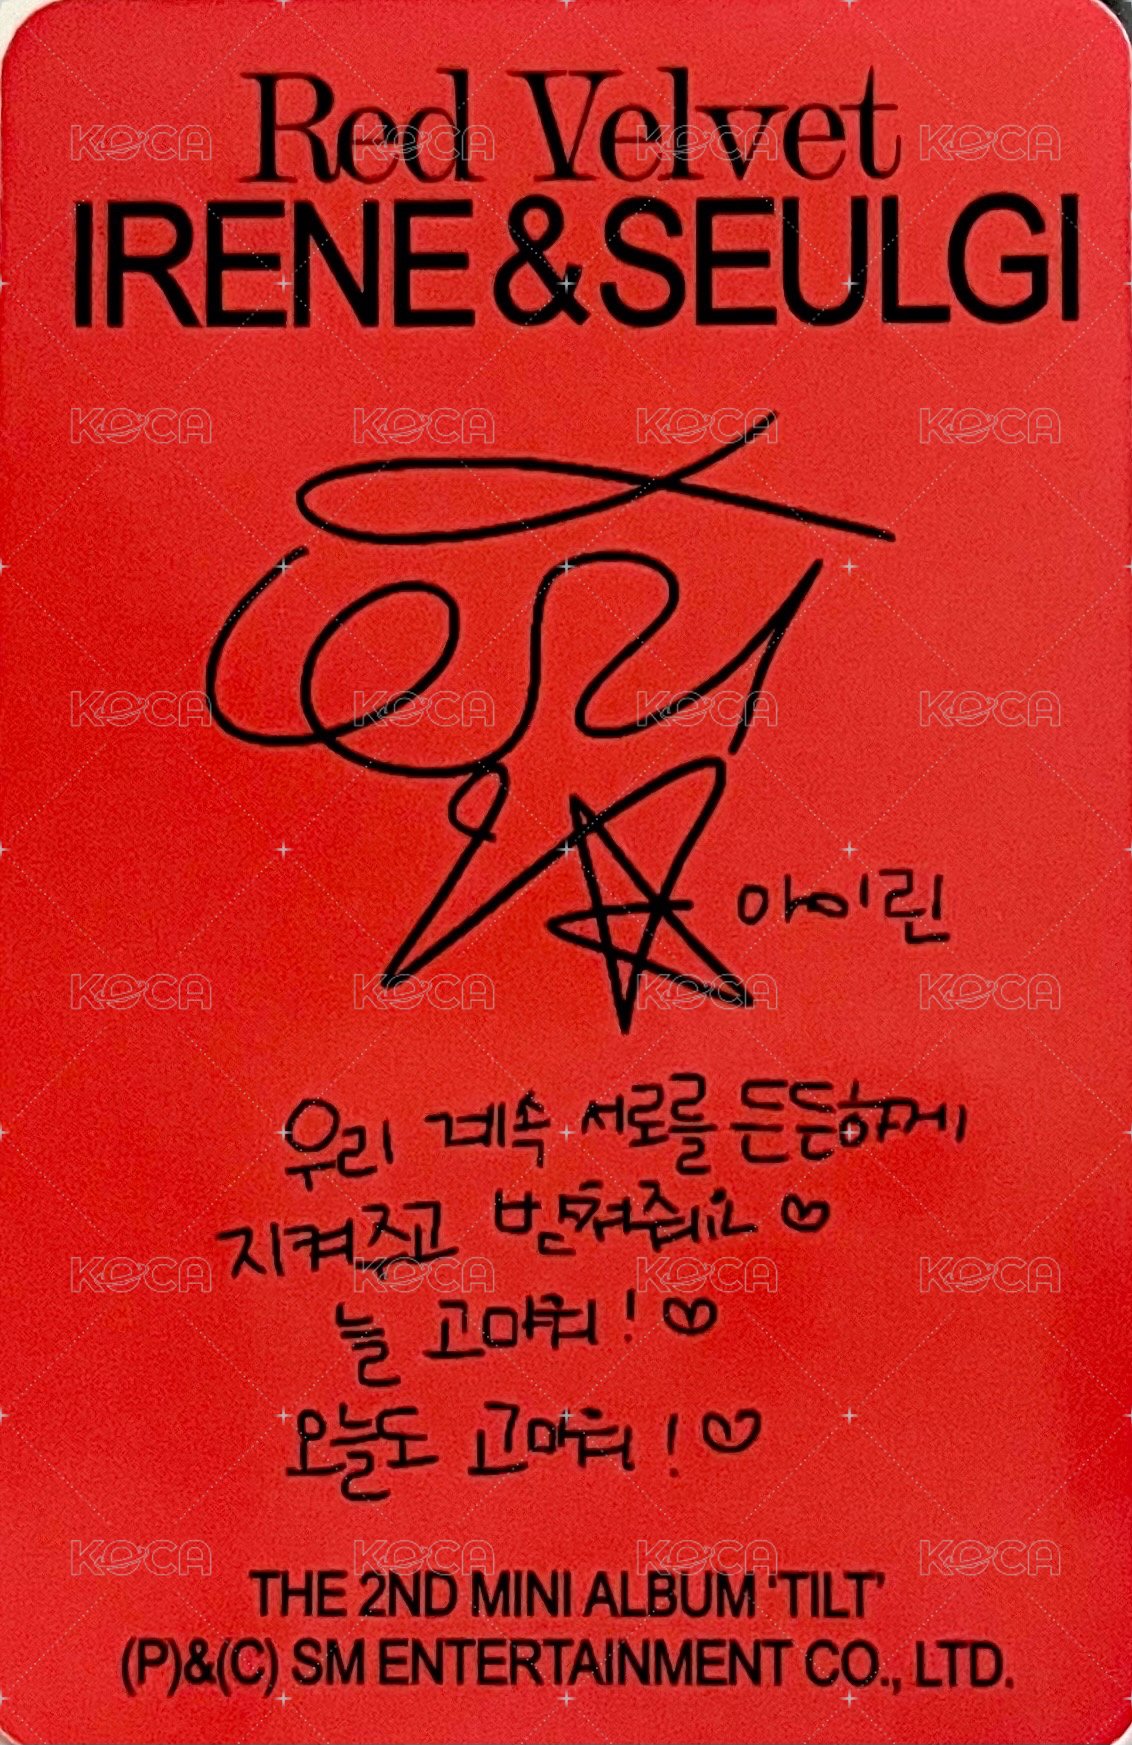 Red Velvet
IRENE & SEULGI
아이린
우리 계속 서로를 든든하게
지켜주고 받쳐줘요 ♡
늘 고마워! ♡
오늘도 고마워! ♡
THE 2ND MINI ALBUM 'TILT'
(P)&(C) SM ENTERTAINMENT CO., LTD.
KOCA